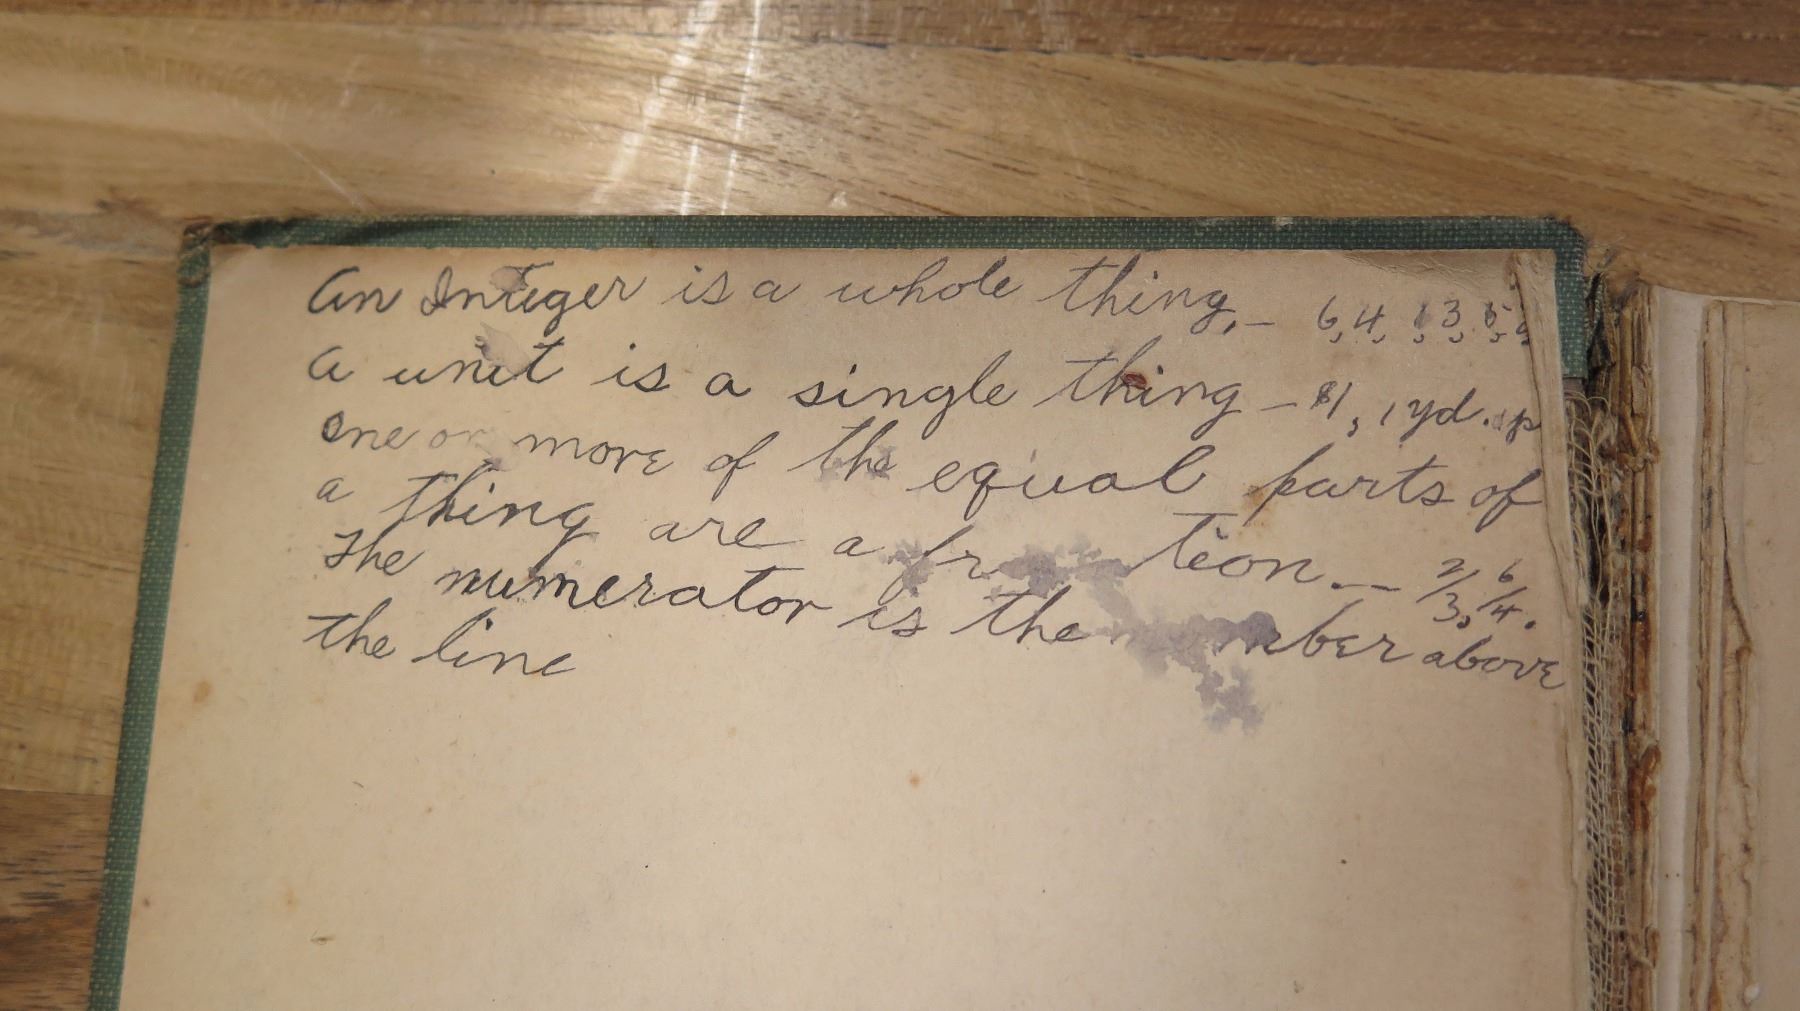 An Integer is a whole thing, – 6, 4, 13, 5,
a unit is a single thing – $1, 1 yd.
one or more of the equal parts of
a thing are a fr tion. – 2/3, 6/4.
The numerator is the number above
the line